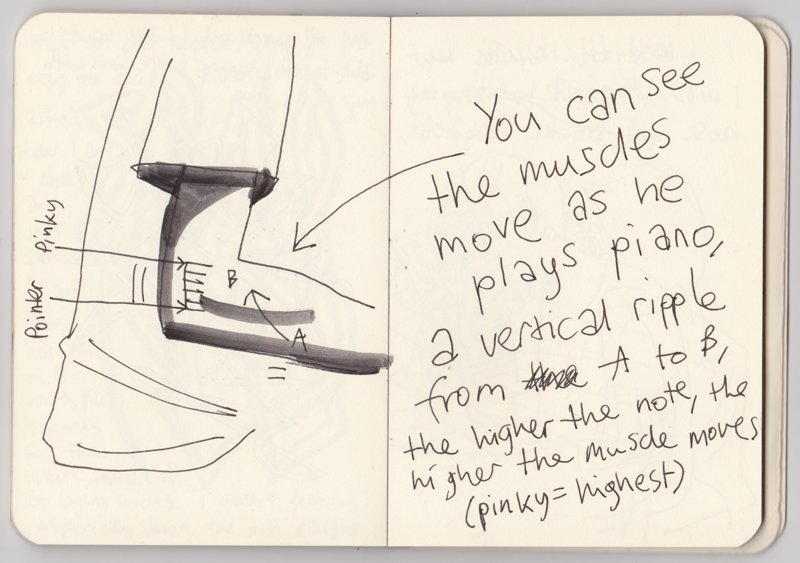 Pinky
Pointer
B
A
You can see
the muscles
move as he
plays piano,
a vertical ripple
from A to B,
the higher the note, the
higher the muscle moves
(pinky = highest)